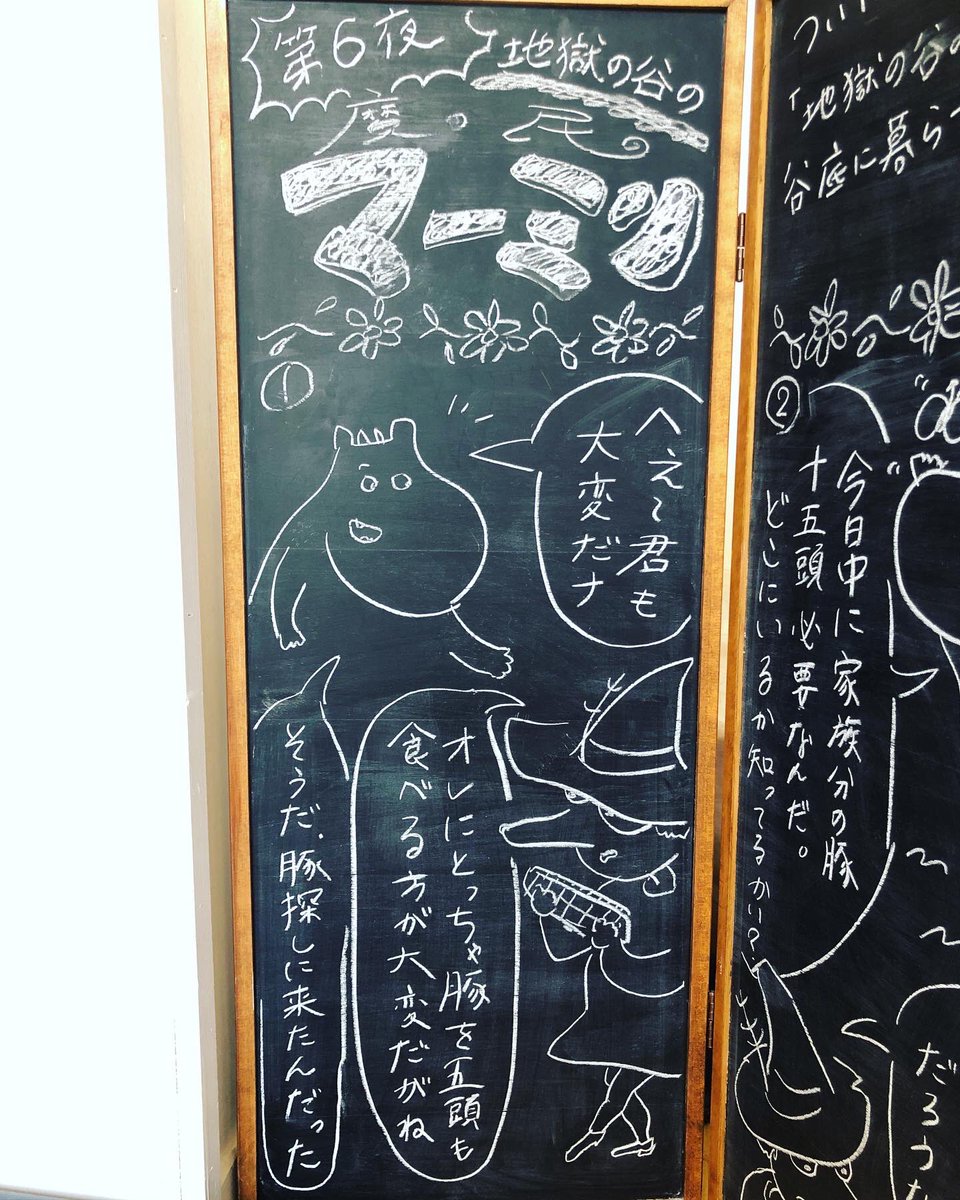 第6夜
地獄の谷の
魔の民の
マーミツ
①
へえ〜君も
大変だナ
オレにとっちゃ豚を五頭も
食べる方が大変だがね
そうだ、豚探しに来たんだった
つい!
「地獄の谷の
谷底に暮ら
②
今日中に家族分の豚
十五頭必要なんだ。
どこにいるか知ってるかい?
だろうな